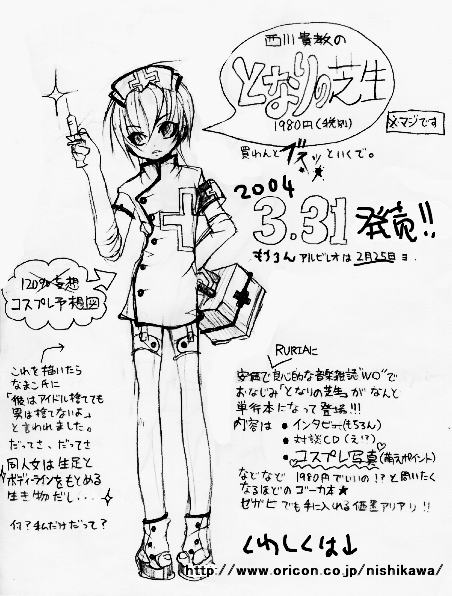 西川貴教の
となりの芝生
1980円(税別)
※マジです
買わんとブスッといくで。
2004
3.31発売!!
もちろんアルビレオは2月25日ヨ.
120%妄想
コスプレ予想図
これを描いたら
なまこ氏に
「彼はアイドル捨てても
男は捨てないよ」
と言われました。
だってさ、だってさ
同人女は生足と
ボディーラインをもとめる
生き物だし...
何?私だけだって?
RURIAに
安価で良心的な音楽雑誌"WO"で
おなじみ「となりの芝生」が なんと
単行本になって登場!!!
内容は ●インタビュー(もちろん)
●対談CD(え!?)
●コスプレ写真(萌えポイント)
などなど 1980円でいいの!?と聞いたく
なるほどのゴーカ本★
ゼガヒでも手に入れる価値アリアリ!!
くわしくは↓
http://www.oricon.co.jp/nishikawa/